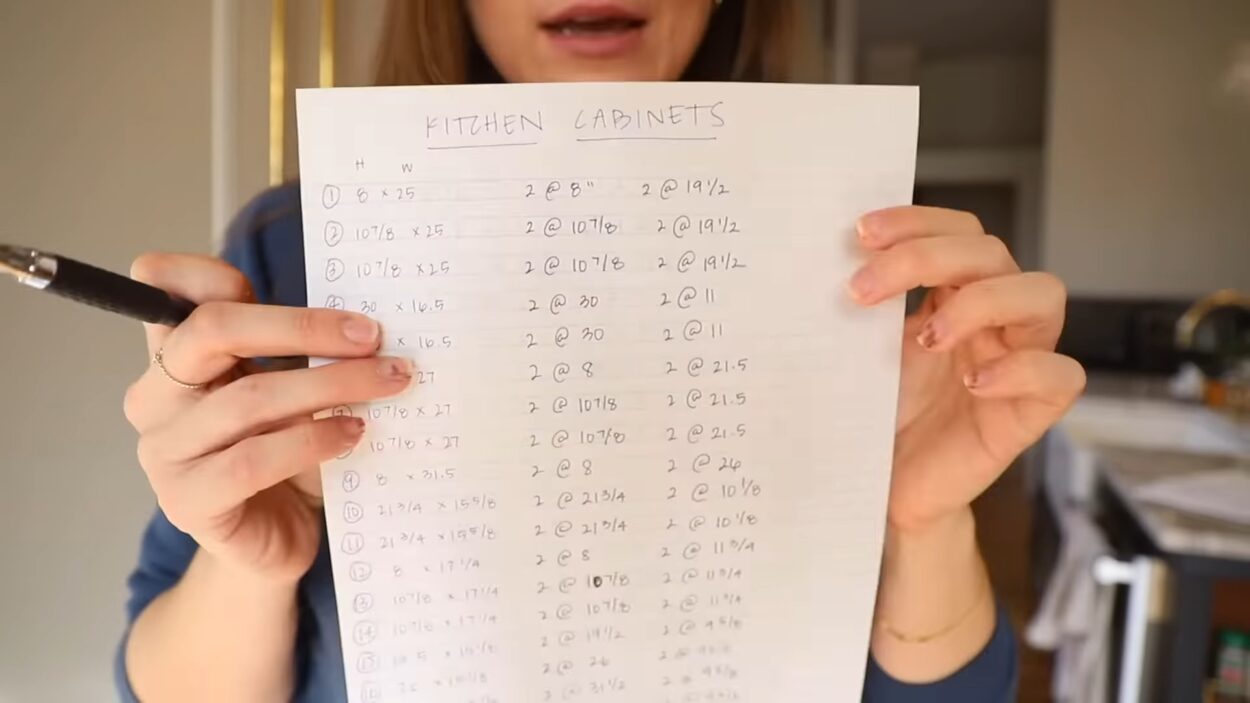 KITCHEN CABINETS
H W
① 8 x 25 2 @ 8" 2 @ 19 1/2
② 10 7/8 x 25 2 @ 10 7/8 2 @ 19 1/2
③ 10 7/8 x 25 2 @ 10 7/8 2 @ 19 1/2
④ 30 x 16.5 2 @ 30 2 @ 11
x 16.5 2 @ 30 2 @ 11
27 2 @ 8 2 @ 21.5
⑦ 10 7/8 x 27 2 @ 10 7/8 2 @ 21.5
10 7/8 x 27 2 @ 10 7/8 2 @ 21.5
⑨ 8 x 31.5 2 @ 8 2 @ 26
⑩ 21 3/4 x 15 5/8 2 @ 21 3/4 2 @ 10 1/8
⑪ 21 3/4 x 15 5/8 2 @ 21 3/4 2 @ 10 1/8
⑫ 8 x 17 1/4 2 @ 8 2 @ 11 3/4
⑬ 10 7/8 x 17 1/4 2 @ 10 7/8 2 @ 11 3/4
⑭ 10 7/8 x 17 1/4 2 @ 10 7/8 2 @ 11 3/4
⑮ 2 @ 19 1/2 2 @ 9 5/8
⑯ 2 @ 26 2 @
2 @ 31 1/2 2 @ 9 5/8